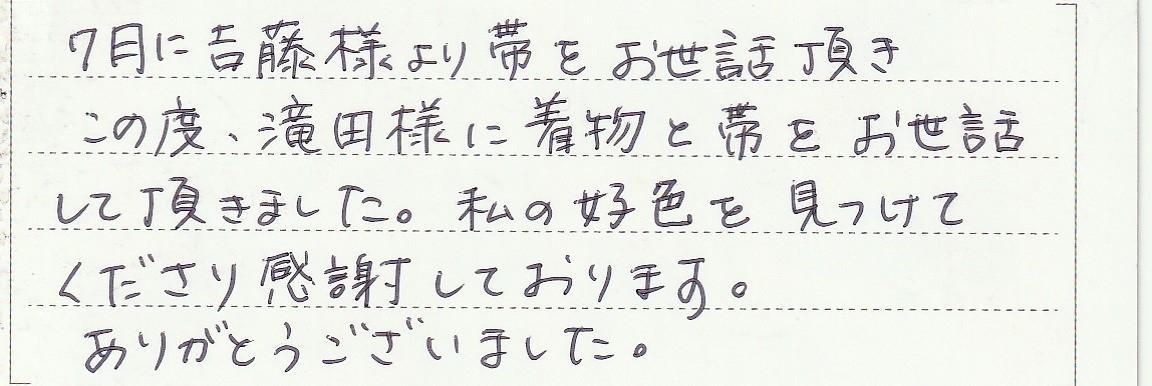 7月に吉藤様より帯をお世話頂き
この度、滝田様に着物と帯をお世話
して頂きました。私の好色を見つけて
くださり感謝しております。
ありがとうございました。